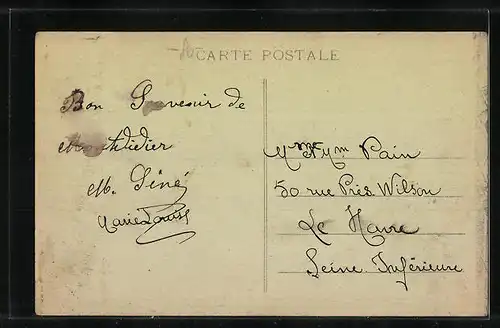 CARTE POSTALE
Bon Souvenir de
Montdidier
M. Siné
Marie Louise
Pain
50 rue Prés. Wilson
Le Havre
Seine Inférieure